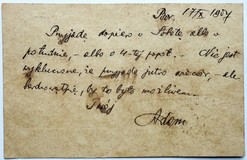 Bor. 17/IX 1907
Przyjadę dopiero w Sobotę albo w
południe, – albo o 4-tej popoł. – Nie jest
wykluczone, że przyjadę jutro wieczór, – ale
by to było możliwem. –
Twój
Adam